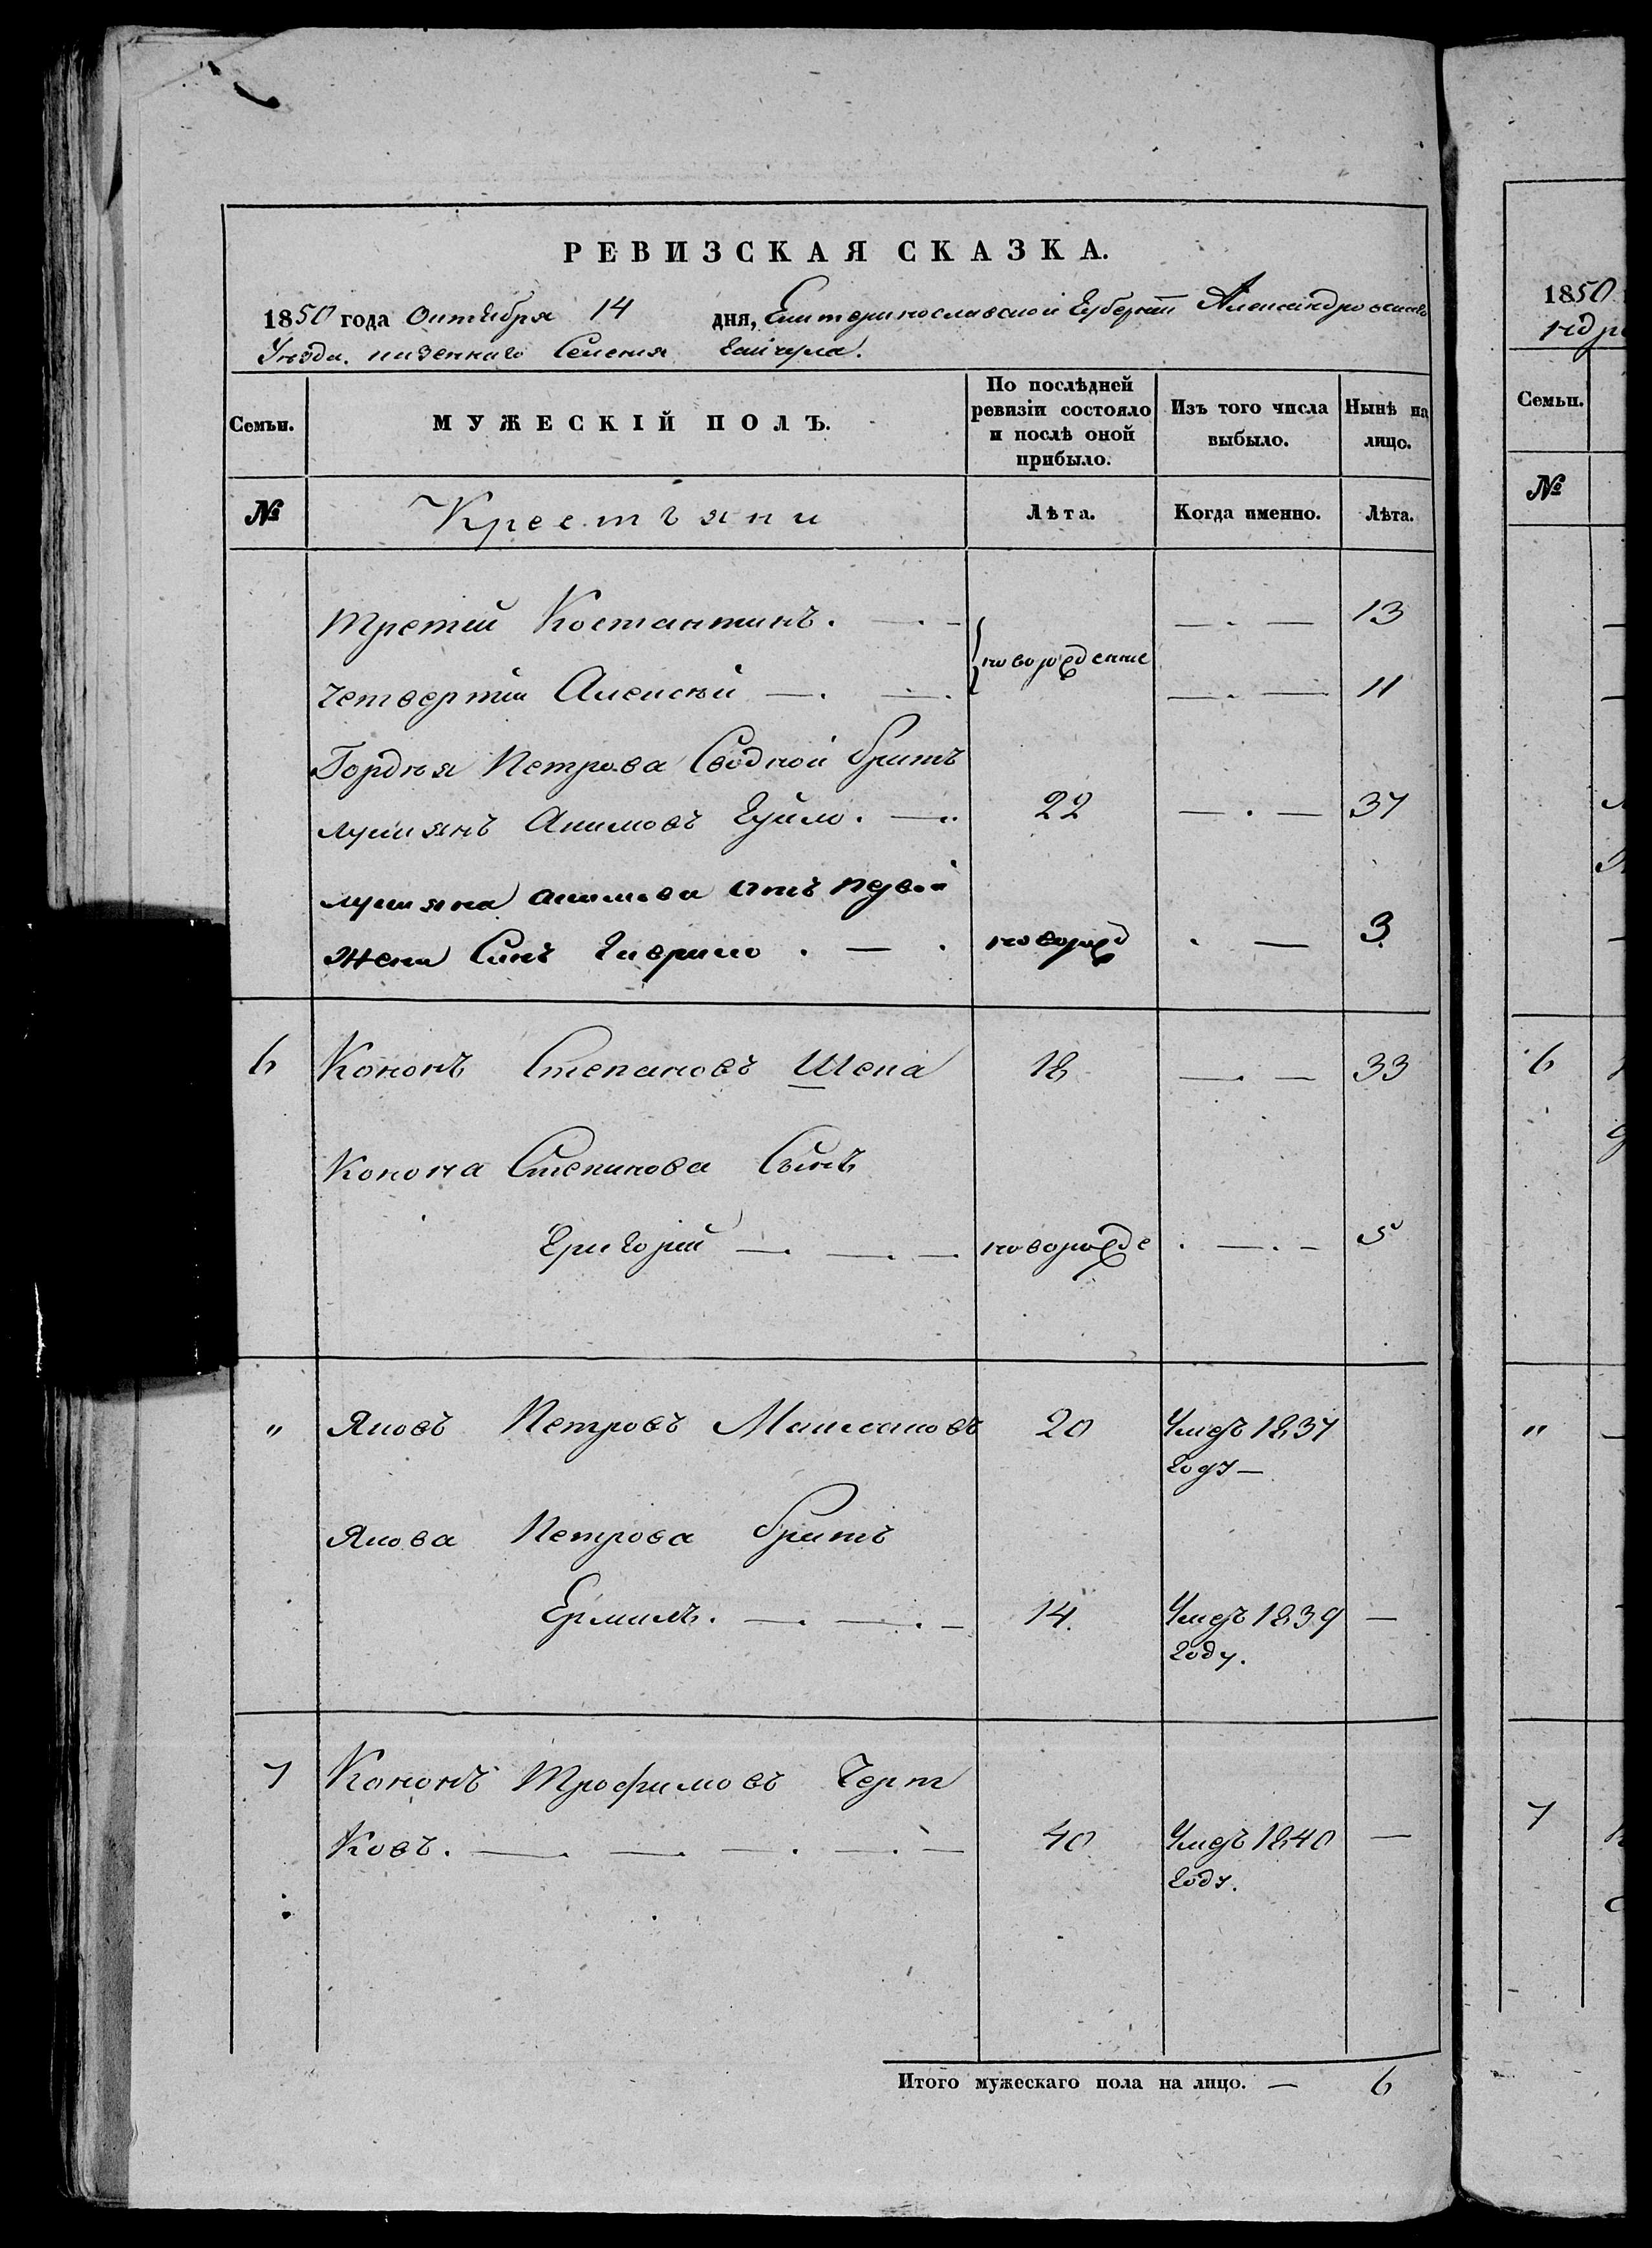 РЕВИЗСКАЯ СКАЗКА.
1850 года Октября 14 дня, Екатеринославской Губерніи Александровскаго
Уѣзда. казеннаго Селенія Гайчула.
Семьи. МУЖЕСКІЙ ПОЛЪ. По послѣдней ревизіи состояло и послѣ оной прибыло. Изъ того числа выбыло. Нынѣ на лицо.
№ Крестьяни Лѣта. Когда именно. Лѣта.
третій Костантинъ. — . — 13
новорожденные
четвертій Алексѣй — . — 11
Гордѣя Петрова Сводной братъ
лукіянъ Акимовъ Гуйло. — 22 — . — 37
лукіяна акимова отъ первой
жени Синъ Гаврило . — . новорожд . — 3
6 Кононъ Степановъ Шепа 18 — . — 33
Конона Степанова Сынъ
Григорій — . — . — новорожде . — . — 5
" Яковъ Петровъ Маисановъ 20 Умеръ 1837
году —
Якова Петрова братъ
Ермилъ. — . — . — 14. Умеръ 1839 —
году.
7 Кононъ Трофимовъ Черт
Ковъ. — . — . — . — . — 40 Умеръ 1840 —
году.
Итого мужескаго пола на лицо. — 6
1850
ндро
Семьи.
№
6
"
7